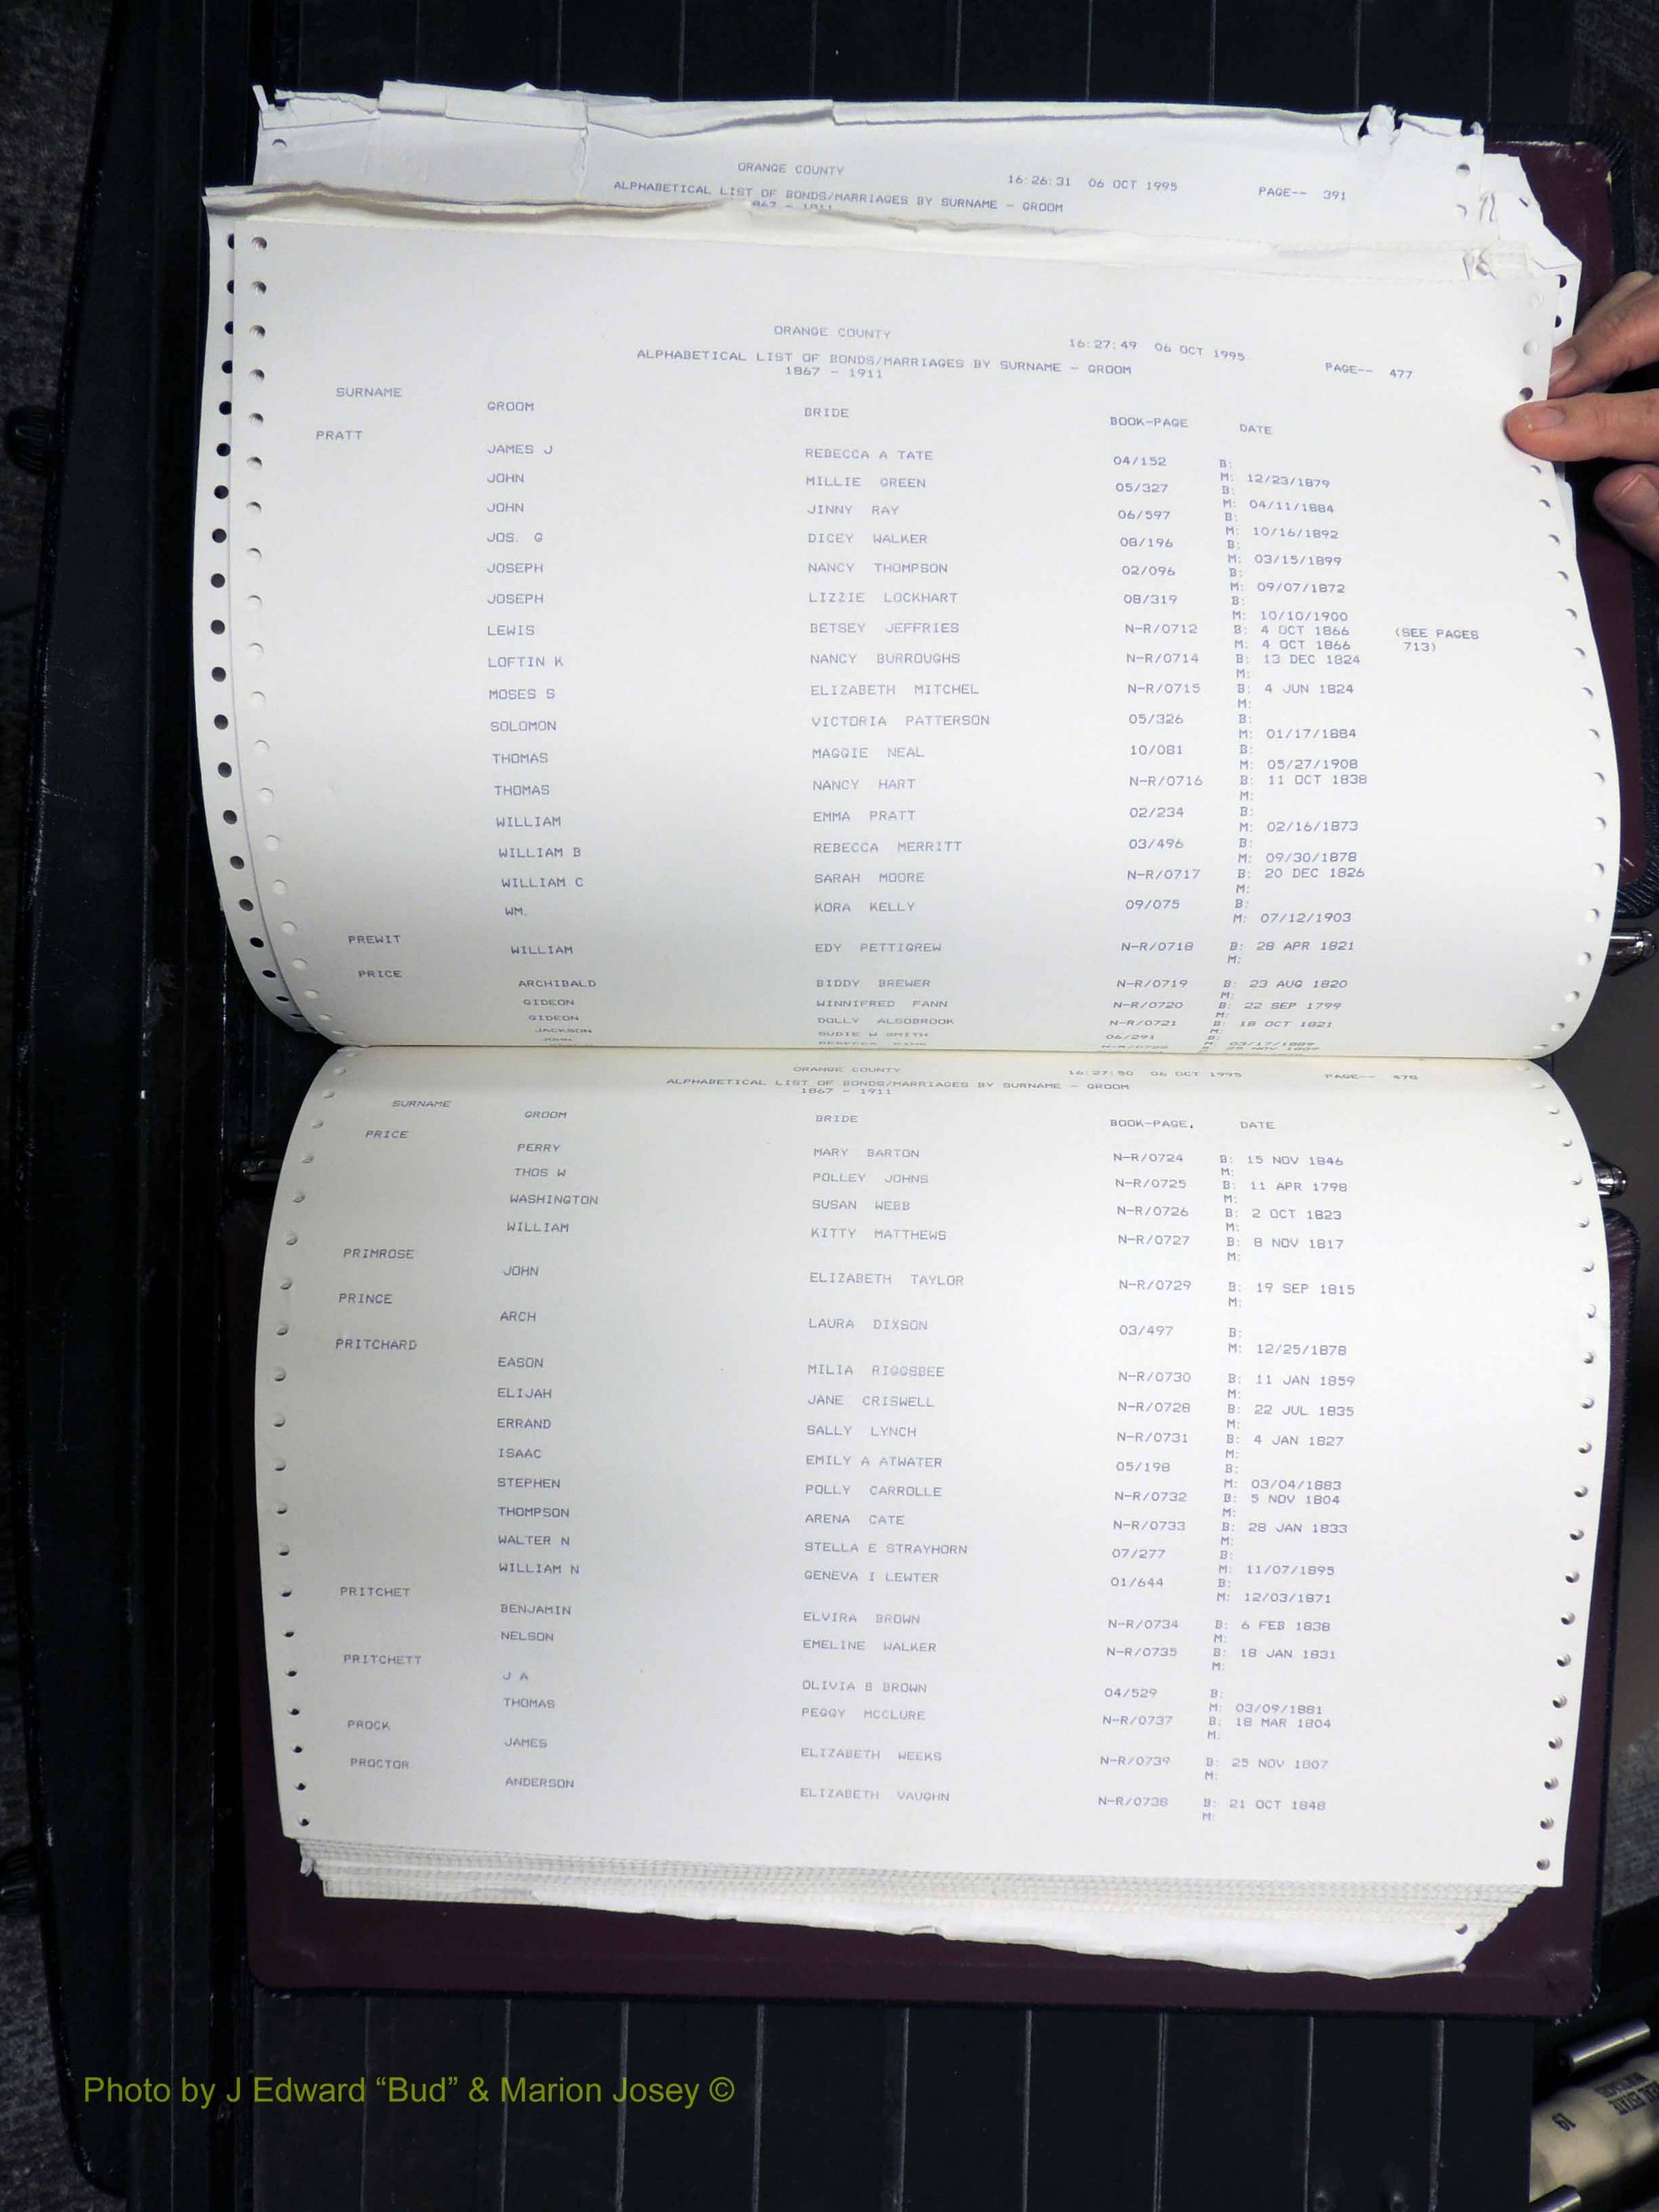 ORANGE COUNTY 16:26:31 06 OCT 1995 PAGE-- 391
ALPHABETICAL LIST OF BONDS/MARRIAGES BY SURNAME - GROOM
1867 - 1911
ORANGE COUNTY 16:27:49 06 OCT 1995 PAGE-- 477
ALPHABETICAL LIST OF BONDS/MARRIAGES BY SURNAME - GROOM
1867 - 1911
SURNAME GROOM BRIDE BOOK-PAGE DATE
PRATT
JAMES J REBECCA A TATE 04/152 B:
M: 12/23/1879
JOHN MILLIE GREEN 05/327 B:
M: 04/11/1884
JOHN JINNY RAY 06/597 B:
M: 10/16/1892
JOS. G DICEY WALKER 08/196 B:
M: 03/15/1899
JOSEPH NANCY THOMPSON 02/096 B:
M: 09/07/1872
JOSEPH LIZZIE LOCKHART 08/319 B:
M: 10/10/1900
LEWIS BETSEY JEFFRIES N-R/0712 B: 4 OCT 1866 (SEE PAGES
M: 4 OCT 1866 713)
LOFTIN K NANCY BURROUGHS N-R/0714 B: 13 DEC 1824
M:
MOSES S ELIZABETH MITCHEL N-R/0715 B: 4 JUN 1824
M:
SOLOMON VICTORIA PATTERSON 05/326 B:
M: 01/17/1884
THOMAS MAGGIE NEAL 10/081 B:
M: 05/27/1908
THOMAS NANCY HART N-R/0716 B: 11 OCT 1838
M:
WILLIAM EMMA PRATT 02/234 B:
M: 02/16/1873
WILLIAM B REBECCA MERRITT 03/496 B:
M: 09/30/1878
WILLIAM C SARAH MOORE N-R/0717 B: 20 DEC 1826
M:
WM. KORA KELLY 09/075 B:
M: 07/12/1903
PREWIT
WILLIAM EDY PETTIGREW N-R/0718 B: 28 APR 1821
M:
PRICE
ARCHIBALD BIDDY BREWER N-R/0719 B: 23 AUG 1820
M:
GIDEON WINNIFRED FANN N-R/0720 B: 22 SEP 1799
M:
GIDEON DOLLY ALSOBROOK N-R/0721 B: 18 OCT 1821
M:
JACKSON SUDIE W SMITH 06/291 B:
M: 03/17/1889
ORANGE COUNTY 16:27:50 06 OCT 1995 PAGE-- 478
ALPHABETICAL LIST OF BONDS/MARRIAGES BY SURNAME - GROOM
1867 - 1911
SURNAME GROOM BRIDE BOOK-PAGE. DATE
PRICE
PERRY MARY BARTON N-R/0724 B: 15 NOV 1846
M:
THOS W POLLEY JOHNS N-R/0725 B: 11 APR 1798
M:
WASHINGTON SUSAN WEBB N-R/0726 B: 2 OCT 1823
M:
WILLIAM KITTY MATTHEWS N-R/0727 B: 8 NOV 1817
M:
PRIMROSE
JOHN ELIZABETH TAYLOR N-R/0729 B: 19 SEP 1815
M:
PRINCE
ARCH LAURA DIXSON 03/497 B:
M: 12/25/1878
PRITCHARD
EASON MILIA RIGGSBEE N-R/0730 B: 11 JAN 1859
M:
ELIJAH JANE CRISWELL N-R/0728 B: 22 JUL 1835
M:
ERRAND SALLY LYNCH N-R/0731 B: 4 JAN 1827
M:
ISAAC EMILY A ATWATER 05/198 B:
M: 03/04/1883
STEPHEN POLLY CARROLLE N-R/0732 B: 5 NOV 1804
M:
THOMPSON ARENA CATE N-R/0733 B: 28 JAN 1833
M:
WALTER N STELLA E STRAYHORN 07/277 B:
M: 11/07/1895
WILLIAM N GENEVA I LEWTER 01/644 B:
M: 12/03/1871
PRITCHET
BENJAMIN ELVIRA BROWN N-R/0734 B: 6 FEB 1838
M:
NELSON EMELINE WALKER N-R/0735 B: 18 JAN 1831
M:
PRITCHETT
J A OLIVIA B BROWN 04/529 B:
M: 03/09/1881
THOMAS PEGGY MCCLURE N-R/0737 B: 18 MAR 1804
M:
PROCK
JAMES ELIZABETH WEEKS N-R/0739 B: 25 NOV 1807
M:
PROCTOR
ANDERSON ELIZABETH VAUGHN N-R/0738 B: 21 OCT 1848
M:
Photo by J Edward “Bud” & Marion Josey ©
19